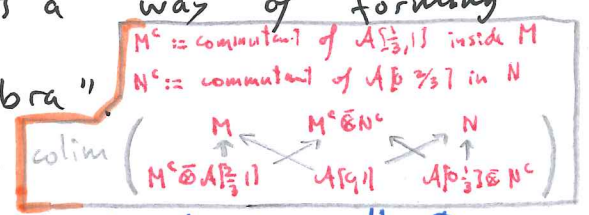 s a way of forming
M^c := commutant of A[⅓,1] inside M
bra".
N^c := commutant of A[0 2/3] in N
M M^c ⊗̄ N^c N
colim (
M^c ⊗̄ A[⅔ 1] A[0,1] A[0 ⅓] ⊗̄ N^c )